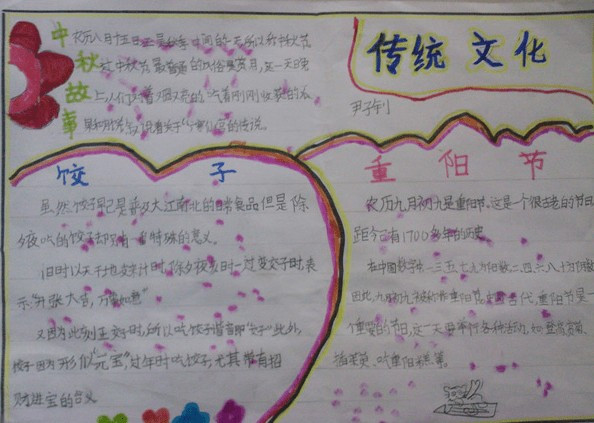 中秋故事
农历八月十五日正是秋季中间的一天所以称中秋节
过中秋节最普通的习俗是赏月,这一天日晚
上人们
吃着刚刚收获的
说着关于
的传说。
传统文化
尹子钊
饺子
虽然饺子早已是普及大江南北的日常食品但是除
夕夜吃的饺子却有一番特殊的意义。
旧时以天干地支来计时,除夕夜亥时一过交子时,表
示"升张大吉,万事如意"
又因为此刻正交子时,所以吃饺子谐音即"交子"此外,
饺子因为形似"元宝",过年时吃饺子,尤其带有招
财进宝的含义
重阳节
农历九月初九是重阳节,这是一个很古老的节日
距今有1700多年的历史
在中国数字中一、三、五、七、九为阳数二、四、六、八、十为阴数
因此,九月初九被称作重阳节,在古代,重阳节是一
个重要的节日,这一天要举行各种活动,如登高
插茱萸、吃重阳糕等